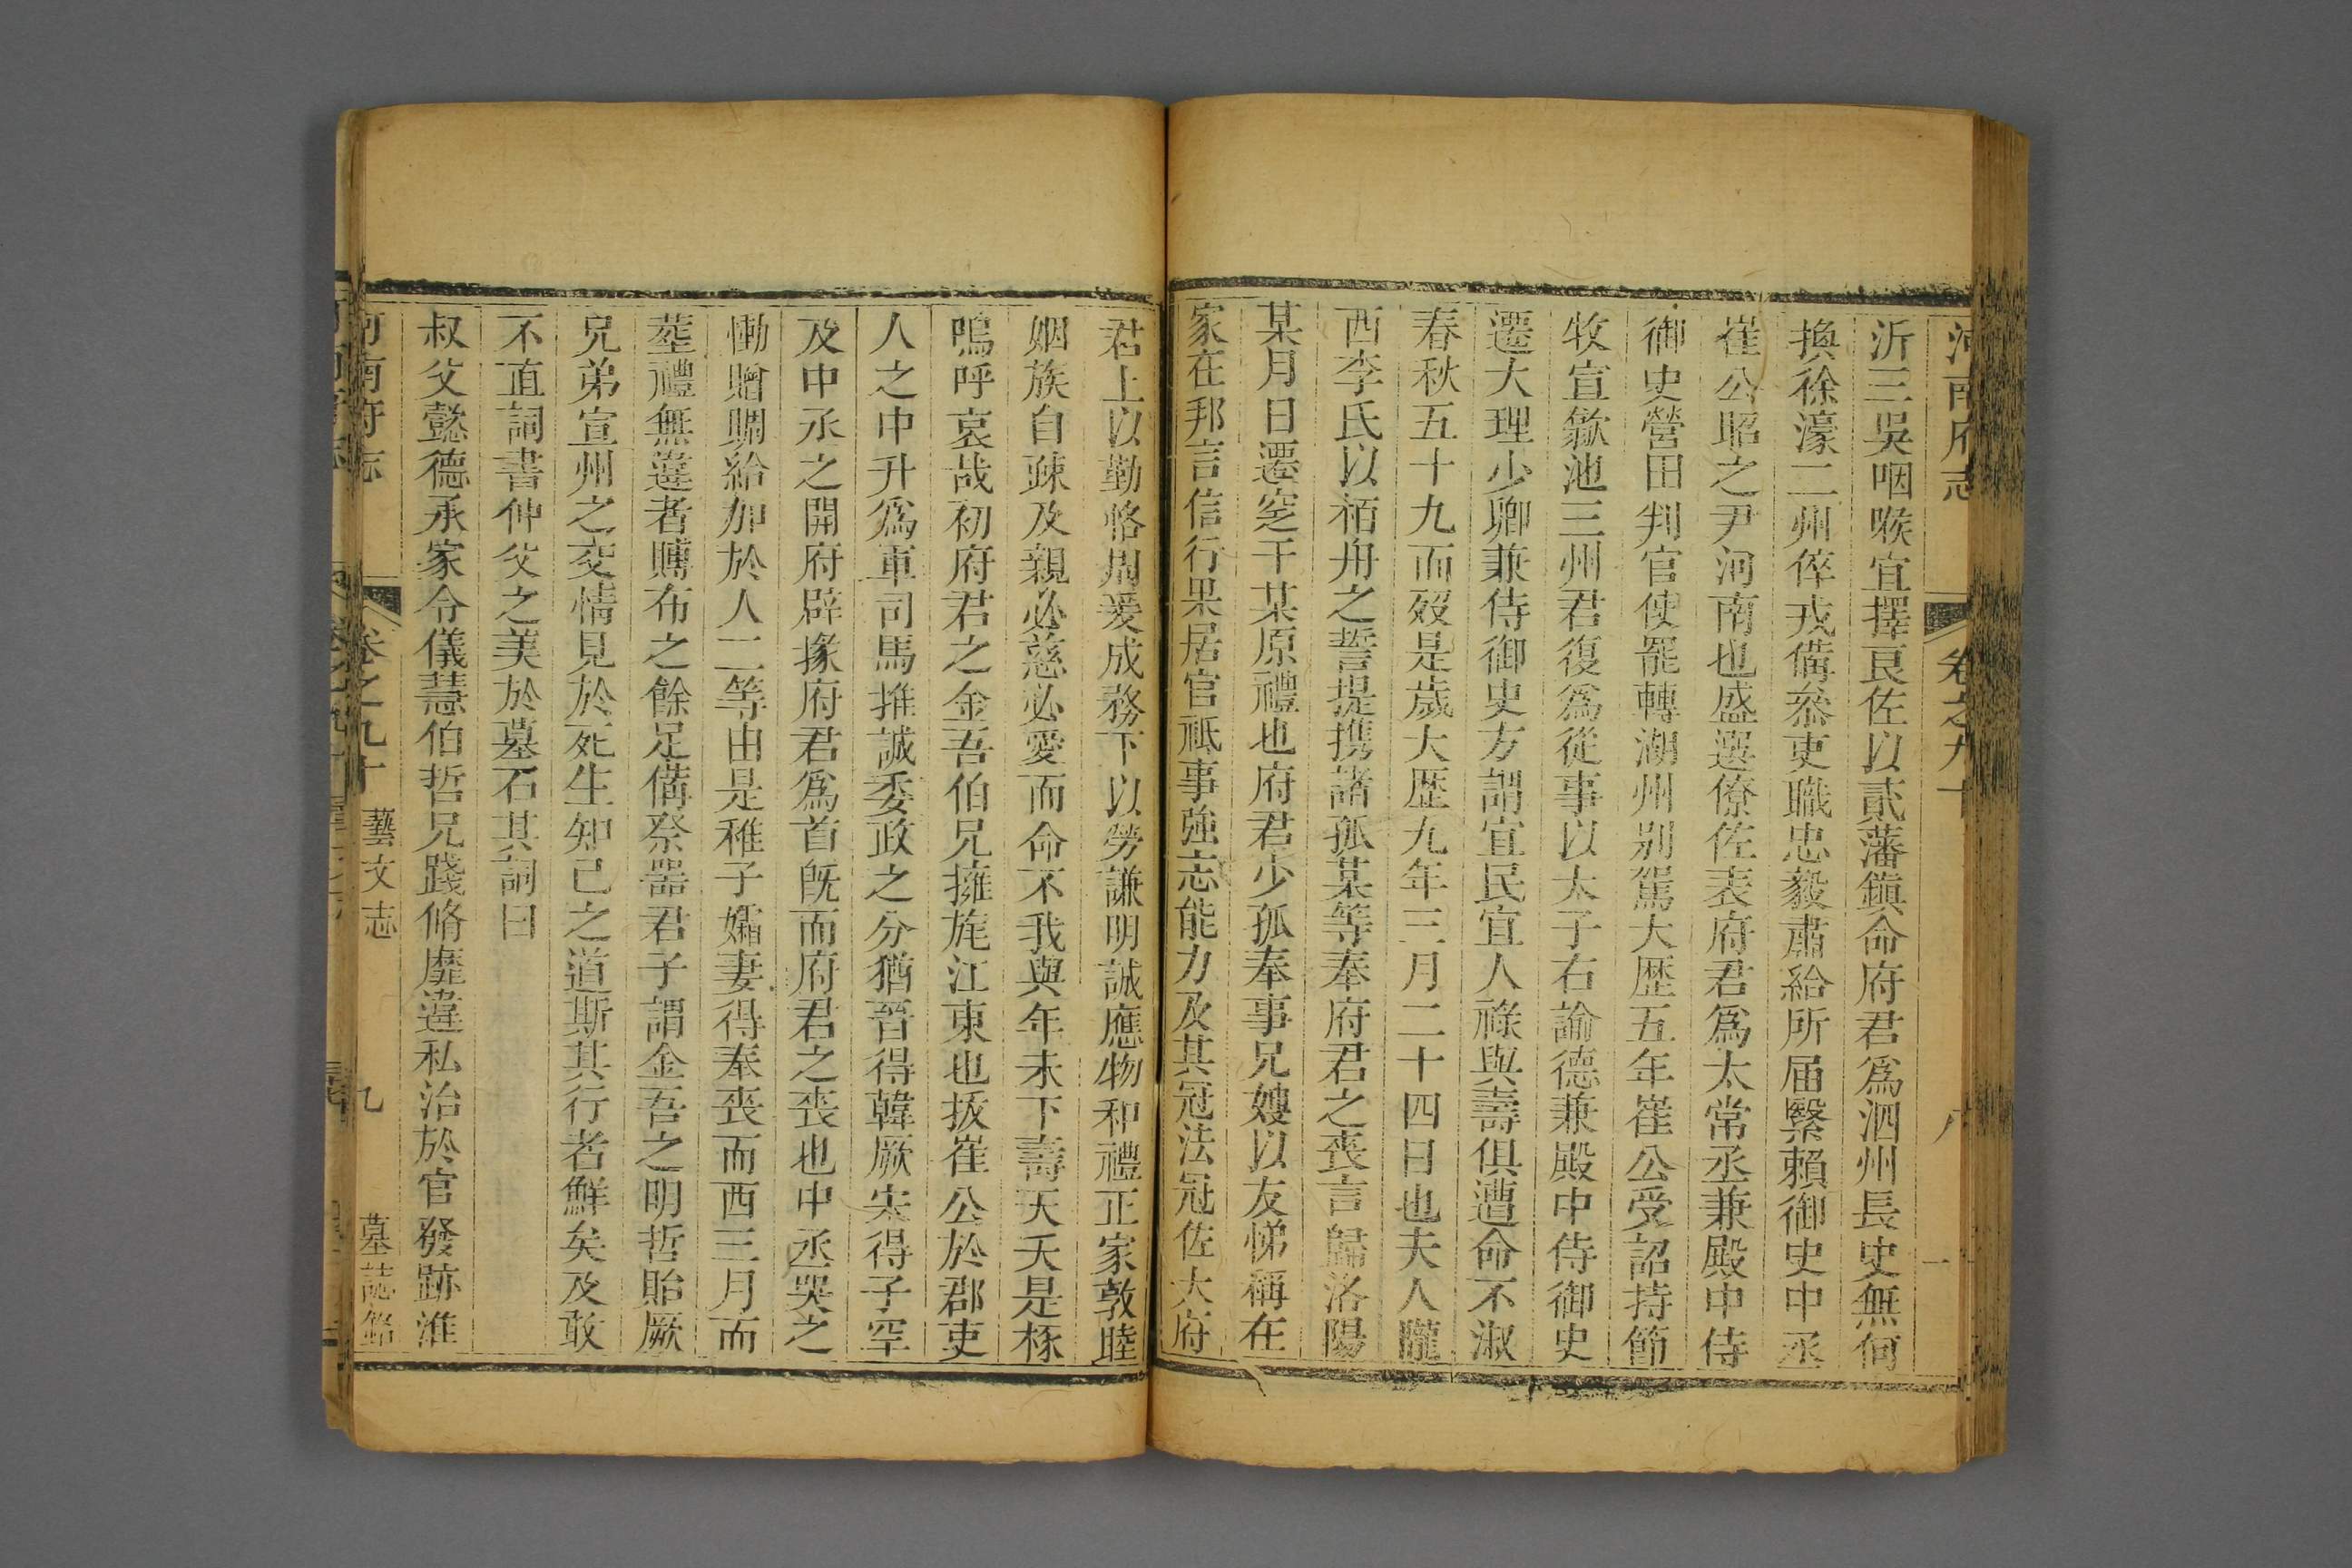 河南府志 卷之九十 八
沂三吳咽喉宜擇良佐以貳藩鎭命府君爲泗州長史無何
換徐濠二州倅戎備叅吏職忠毅肅給所届繄賴御史中丞
崔公昭之尹河南也盛選僚佐表府君爲太常丞兼殿中侍
御史營田判官使罷轉湖州别駕大歷五年崔公受詔持節
牧宣歙池三州君復爲從事以太子右諭德兼殿中侍御史
遷大理少卿兼侍御史方謂宜民宜人祿與壽俱遭命不淑
春秋五十九而歿是歲大歷九年三月二十四日也夫人隴
西李氏以栢舟之誓提携諸孤某等奉府君之喪言歸洛陽
某月日遷窆于某原禮也府君少孤奉事兄嫂以友悌稱在
家在邦言信行果居官祗事強志能力及其冠法冠佐大府
君上以勤恪周爰成務下以勞謙明誠應物和禮正家敦睦
姻族自疎及親必慈必愛而命不我與年未下壽天夭是椓
嗚呼哀哉初府君之金吾伯兄擁旄江東也拔崔公於郡吏
人之中升爲軍司馬推誠委政之分猶晉得韓厥宋得子罕
及中丞之開府辟掾府君爲首旣而府君之喪也中丞哭之
慟贈賵給加於人二等由是稚子孀妻得奉喪而西三月而
塟禮無違者賻布之餘足備祭器君子謂金吾之明哲貽厥
兄弟宣州之交情見於死生知己之道斯其行者鮮矣及敢
不直詞書仲父之美於墓石其詞曰
叔父懿德承家令儀慧伯哲兄踐脩靡違私治於官發跡淮
河南府志 卷之九十 藝文志 九 墓誌銘